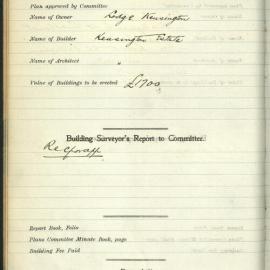 Plan approved by Committee
Name of Owner Lodge Kensington
Name of Builder Kensington Estate
Name of Architect "
Value of Buildings to be erected £1900
Building Surveyor's Report to Committee.
Report Book, Folio
Plans Committee Minute Book, page
Building Fee Paid